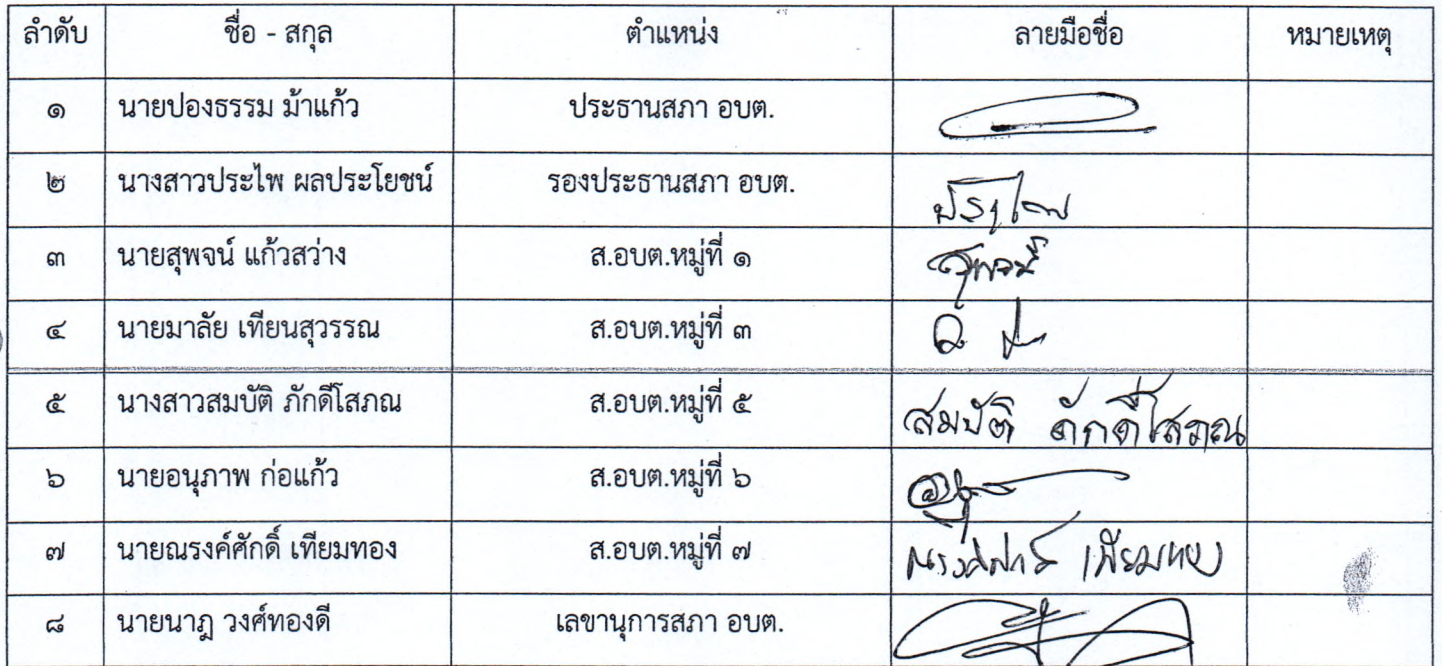 ลำดับ ชื่อ - สกุล ตำแหน่ง ลายมือชื่อ หมายเหตุ
๑ นายปองธรรม ม้าแก้ว ประธานสภา อบต.
๒ นางสาวประไพ ผลประโยชน์ รองประธานสภา อบต. ประไพ
๓ นายสุพจน์ แก้วสว่าง ส.อบต.หมู่ที่ ๑ สุพจน์
๔ นายมาลัย เทียนสุวรรณ ส.อบต.หมู่ที่ ๓
๕ นางสาวสมบัติ ภักดีโสภณ ส.อบต.หมู่ที่ ๕ สมบัติ ภักดีโสภณ
๖ นายอนุภาพ ก่อแก้ว ส.อบต.หมู่ที่ ๖
๗ นายณรงค์ศักดิ์ เทียมทอง ส.อบต.หมู่ที่ ๗ ณรงค์ศักดิ์ เทียมทอง
๘ นายนาฎ วงศ์ทองดี เลขานุการสภา อบต.